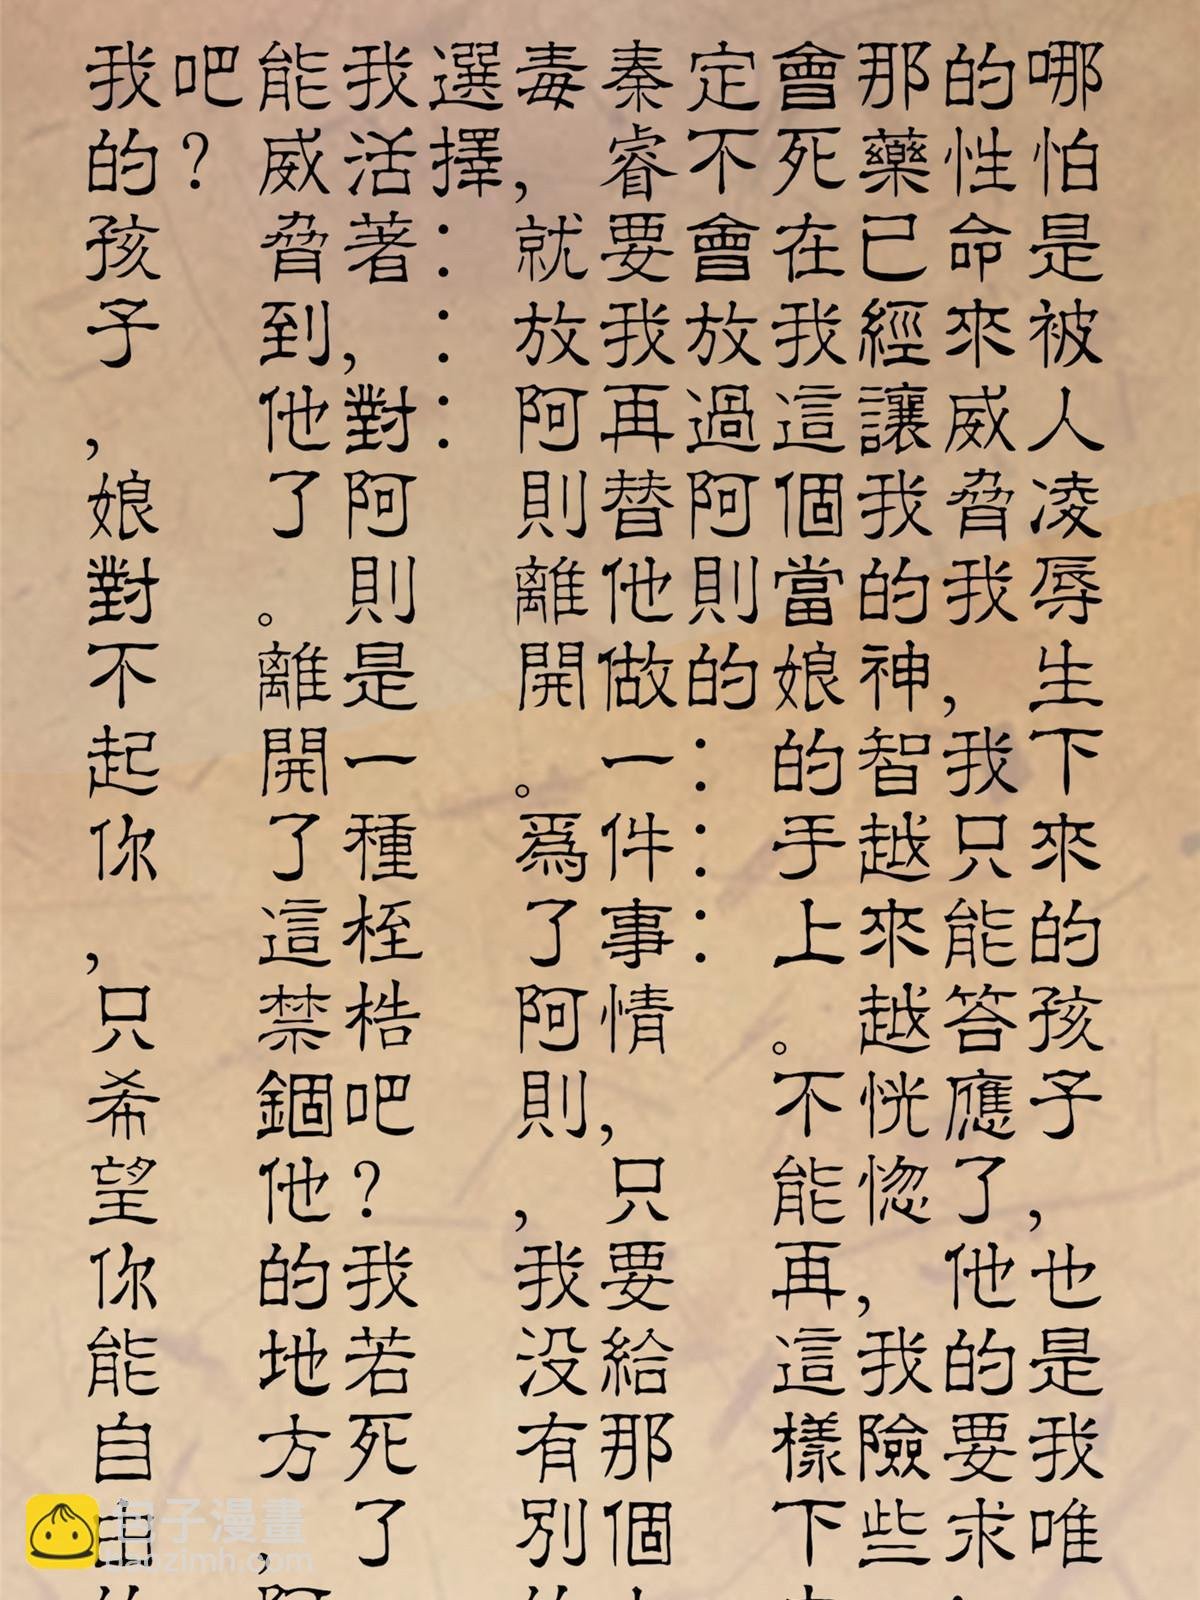 哪怕是被人凌辱生下來的孩子，也是我唯
的性命來威脅我，我只能答應了，他的要求
那藥已經讓我的神智越來越恍惚，我險些
會死在我這個當娘的手上。不能再這樣下
定不會放過阿則的………
秦睿要我再替他做一件事情，只要給那個
毒，就放阿則離開。爲了阿則，我没有别
選擇………
我活著，對阿則是一種桎梏吧？我若死了
能威脅到他了。離開了這禁錮他的地方，阿
吧？
我的孩子，娘對不起你，只希望你能自由
包子漫畫
baozimh.com